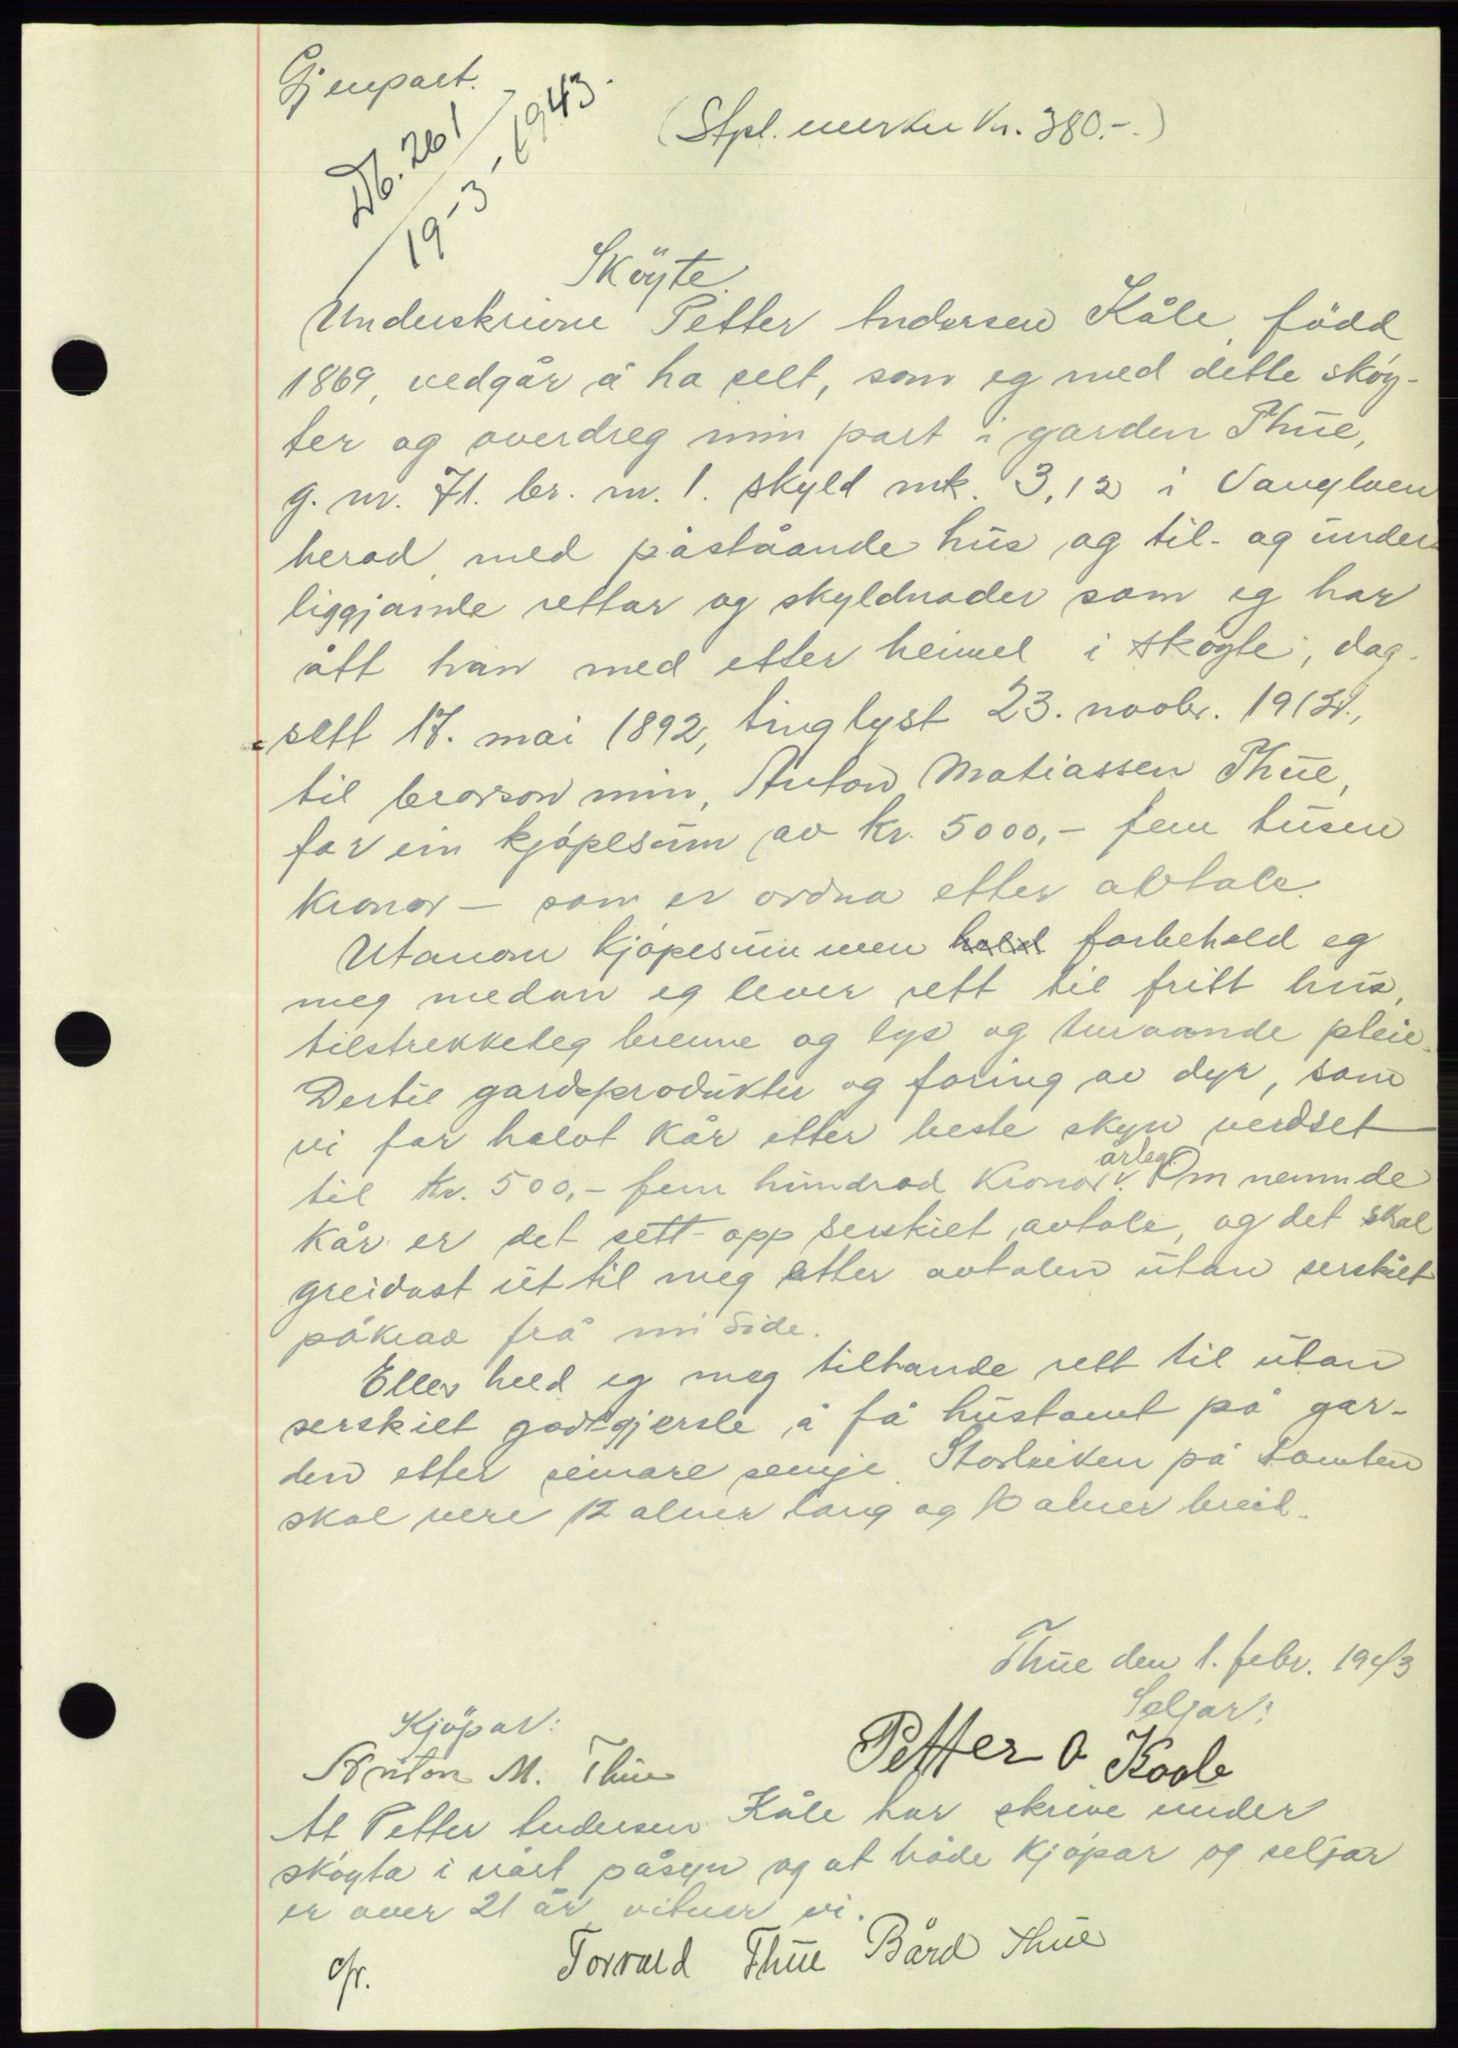 Gjenpart.
Db. 261
19-3-1943.
(Stpl. merke kr. 380.-.)
Sköyte.
Underskrivne Petter Andersen Kåle, född
1869, vedgår å ha selt, som eg med dette sköy-
ter og overdreg min part i garden Thūe,
g. nr. 71. br. nr. 1. skyld mk. 3,12 i Vanylven
herad, med påståande hūs og til- og ūnder-
liggjande rettar og skyldnader som eg har
ått han med etter heimel i sköyte, dag-
sett 17. mai 1892, tinglyst 23. novbr.
til brorson min, Anton Matiassen Thūe,
for ein kjöpesūm av kr. 5000,- fem tūsen
kronor - som er ordna etter avtale.
Utanom kjöpesūmmen hold forbehold eg
meg medan eg lever rett til fritt hūs,
tilstrekkeleg brenne og lys og turvande pleie.
Dertil gardsprodūkter og foring av dyr, som
vi for halvt kår etter beste skyn verdset
til kr. 500,- fem hūndrad kronor årleg. Om nemnde
kår er det sett opp serskiet avtale, og det skal
greidast ūt til meg etter avtalen ūtan serskilt
påkrav frå mi side.
Elles held eg meg tilhande rett til ūtan
serskilt godtgjersle å få hūstomt på gar-
den etter seinare semje. Storleiken på tomten
skal vere 12 alner lang og 10 alner breid.
Thūe den 1. febr. 1943
Seljar:
Kjöpar:
Petter A Koole
Anton M. Thue
At Petter Andersen Kåle har skrive under
sköyta i vårt påsyn og at både kjöpar og seljar
er over 21 år vitner vi.
Torvald Thūe Bård Thūe